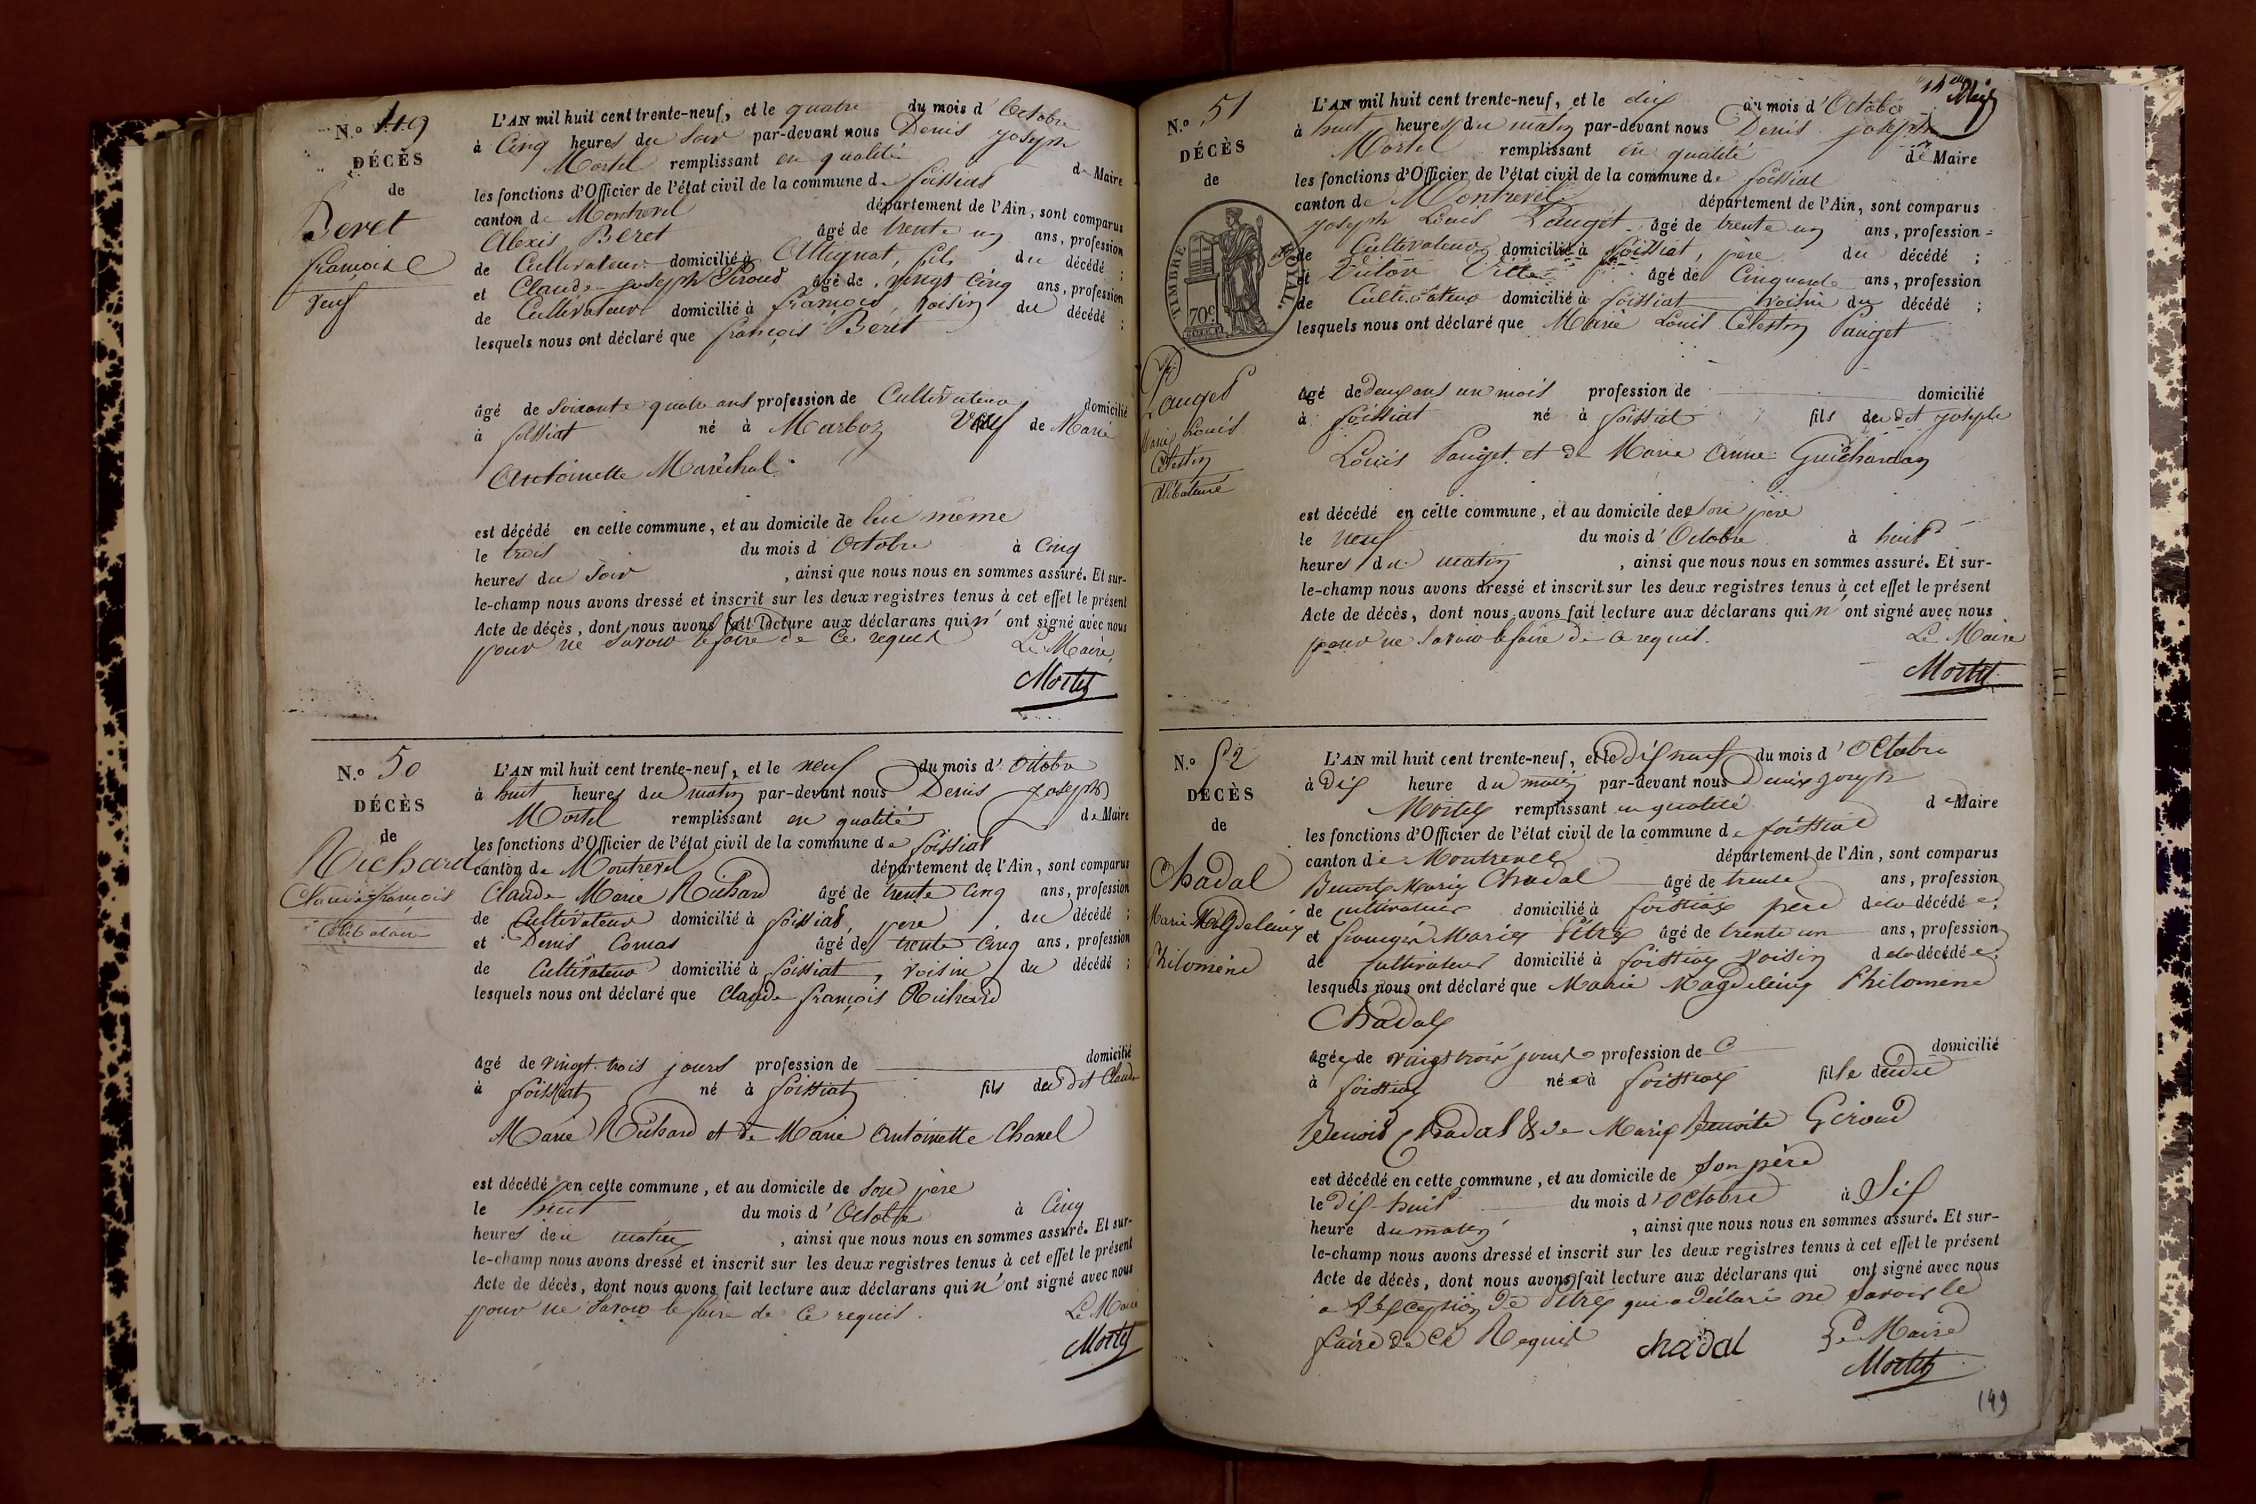 N.o 49
DÉCÈS
de
Beret
françois
veuf
L'AN mil huit cent trente-neuf, et le quatre du mois d'Octobre
à Cinq heures du Soir par-devant nous Denis Joseph
Mortel remplissant en qualité de Maire
les fonctions d'Officier de l'état civil de la commune de foissiat
canton de Montrevel département de l'Ain, sont comparus
Alexis Beret âgé de trente un ans, profession
de Cultivateur domicilié à Attignat, fils du décédé ;
et Claude Joseph Piroud âgé de vingt Cinq ans, profession
de Cultivateur domicilié à voisin du décédé ;
lesquels nous ont déclaré que françois Beret
âgé de Soixante quatre ans profession de Cultivateur domicilié
à foissiat né à Marboz Veuf de Marie
Antoinette Maréchal
est décédé en cette commune, et au domicile de lui même
le trois du mois d'Octobre à Cinq
heures du Soir, ainsi que nous nous en sommes assuré. Et sur-
le-champ nous avons dressé et inscrit sur les deux registres tenus à cet effet le présent
Acte de décès, dont nous avons fait lecture aux déclarans qui n'ont signé avec nous
pour ne Savoir le faire de Ce requis
Le Maire,
Mortel
N.o 50
DÉCÈS
de
Richard
Claude françois
Célibataire
L'AN mil huit cent trente-neuf, et le neuf du mois d'Octobre
à huit heures du matin par-devant nous Denis Joseph
Mortel remplissant en qualité de Maire
les fonctions d'Officier de l'état civil de la commune de foissiat
canton de Montrevel département de l'Ain, sont comparus
Claude Marie Richard âgé de trente Cinq ans, profession
de Cultivateur domicilié à foissiat, père du décédé ;
et Denis Comas âgé de trente Cinq ans, profession
de Cultivateur domicilié à foissiat, voisin du décédé ;
lesquels nous ont déclaré que Claude françois Richard
âgé de vingt trois jours profession de domicilié
à foissiat né à foissiat fils du dit Claude
Marie Richard et de Marie Antoinette Chanel
est décédé en cette commune, et au domicile de Son père
le huit du mois d'Octobre à Cinq
heures du matin, ainsi que nous nous en sommes assuré. Et sur-
le-champ nous avons dressé et inscrit sur les deux registres tenus à cet effet le présent
Acte de décès, dont nous avons fait lecture aux déclarans qui n'ont signé avec nous
pour ne Savoir le faire de Ce requis.
Le Maire
Mortel
N.o 51
DÉCÈS
de
TIMBRE ROYAL
70c
Pauget
Marie Louis
Célestin
Célibataire
L'AN mil huit cent trente-neuf, et le dix du mois d'Octobre
à huit heures du matin par-devant nous Denis Joseph
Mortel remplissant en qualité de Maire
les fonctions d'Officier de l'état civil de la commune de foissiat
canton de Montrevel département de l'Ain, sont comparus
Joseph Louis Pauget âgé de trente un ans, profession
de Cultivateur domicilié à foissiat, père du décédé ;
et âgé de Cinquante ans, profession
de Cultivateur domicilié à foissiat voisin du décédé ;
lesquels nous ont déclaré que Marie Louis Célestin Pauget
âgé de deux ans un mois profession de domicilié
à foissiat né à foissiat fils du dit Joseph
Louis Pauget et de Marie Anne Guichardon
est décédé en cette commune, et au domicile de Son père
le neuf du mois d'Octobre à huit
heures du matin, ainsi que nous nous en sommes assuré. Et sur-
le-champ nous avons dressé et inscrit sur les deux registres tenus à cet effet le présent
Acte de décès, dont nous avons fait lecture aux déclarans qui n'ont signé avec nous
pour ne Savoir le faire de Ce requis.
Le Maire
Mortel
N.o 52
DÉCÈS
de
Chadal
Marie Magdeleine
Philomène
L'AN mil huit cent trente-neuf, et le Dix neuf du mois d'Octobre
à Dix heure du matin par-devant nous Denis Joseph
Mortel remplissant en qualité de Maire
les fonctions d'Officier de l'état civil de la commune de foissiat
canton de Montrevel département de l'Ain, sont comparus
Benoit Marie Chadal âgé de trente ans, profession
de cultivateur domicilié à foissiat père de la décédée ;
et françois Marie Pitre âgé de trente un ans, profession
de cultivateur domicilié à foissiat voisin de la décédée ;
lesquels nous ont déclaré que Marie Magdeleine Philomène
Chadal
âgée de vingt trois jours profession de domicilié
à foissiat née à foissiat fille du dit
Benoit Chadal & de Marie Benoite Giroud
est décédé en cette commune, et au domicile de Son père
le Dix-huit du mois d'Octobre à Dix
heure du matin, ainsi que nous nous en sommes assuré. Et sur-
le-champ nous avons dressé et inscrit sur les deux registres tenus à cet effet le présent
Acte de décès, dont nous avons fait lecture aux déclarans qui ont signé avec nous
a l'exception de Pitre qui a déclaré ne Savoir le
faire de Ce Requis
chadal
Le Maire
Mortel
149